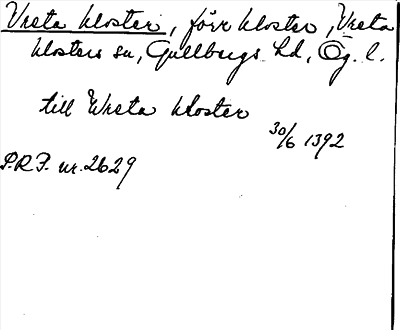 Vreta kloster, förr kloster, Vreta
klosters sn, Gullbergs hd, Ög. l.
till Wreta kloster
30/6 1392
P.R.F. nr. 2629